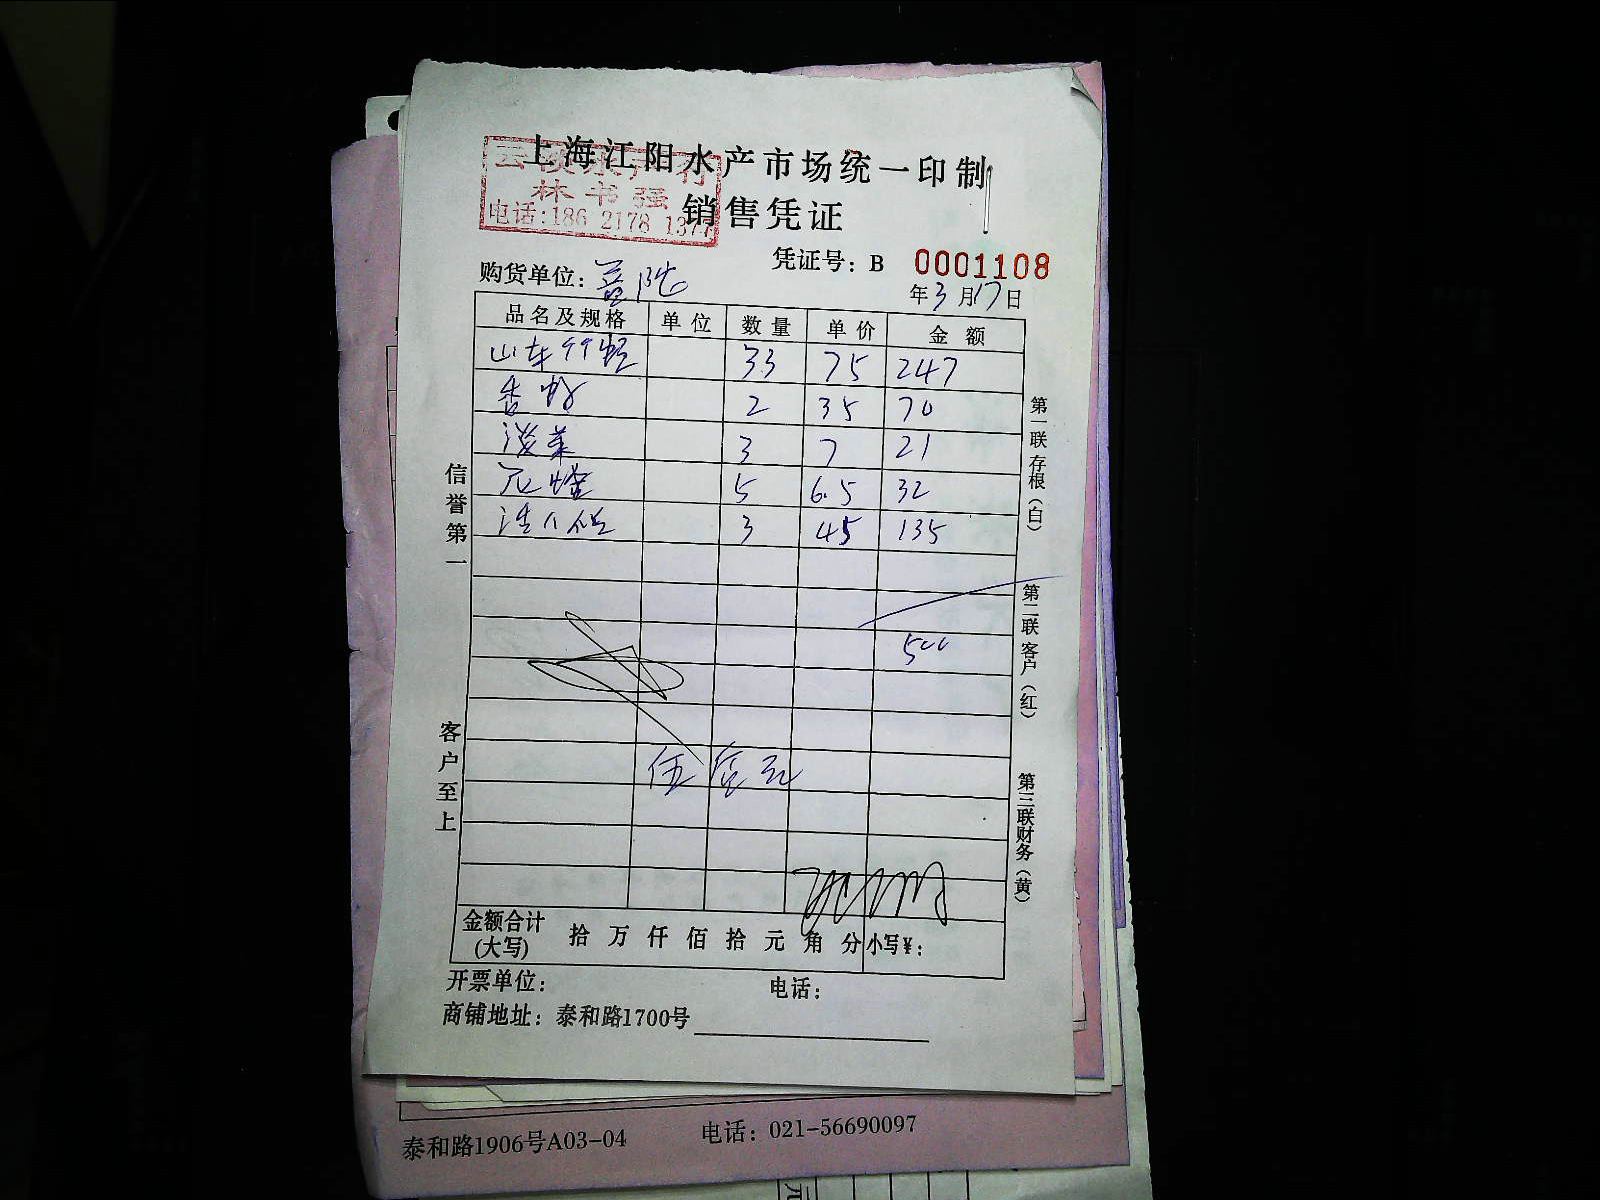 上海江阳水产市场统一印制
林书强
电话:186 2178 1377
销售凭证
凭证号：B 0001108
购货单位：
年3月17日
品名及规格 单位 数量 单价 金额
山东竹蛏 33 75 247
2 35 70
淡菜 3 7 21
5 6.5 32
3 45 135
500
伍佰元
金额合计(大写) 拾 万 仟 佰 拾 元 角 分 小写¥：
开票单位： 电话：
商铺地址：泰和路1700号
信誉第一
客户至上
第一联存根（白）
第二联客户（红）
第三联财务（黄）
泰和路1906号A03-04 电话：021-56690097
元